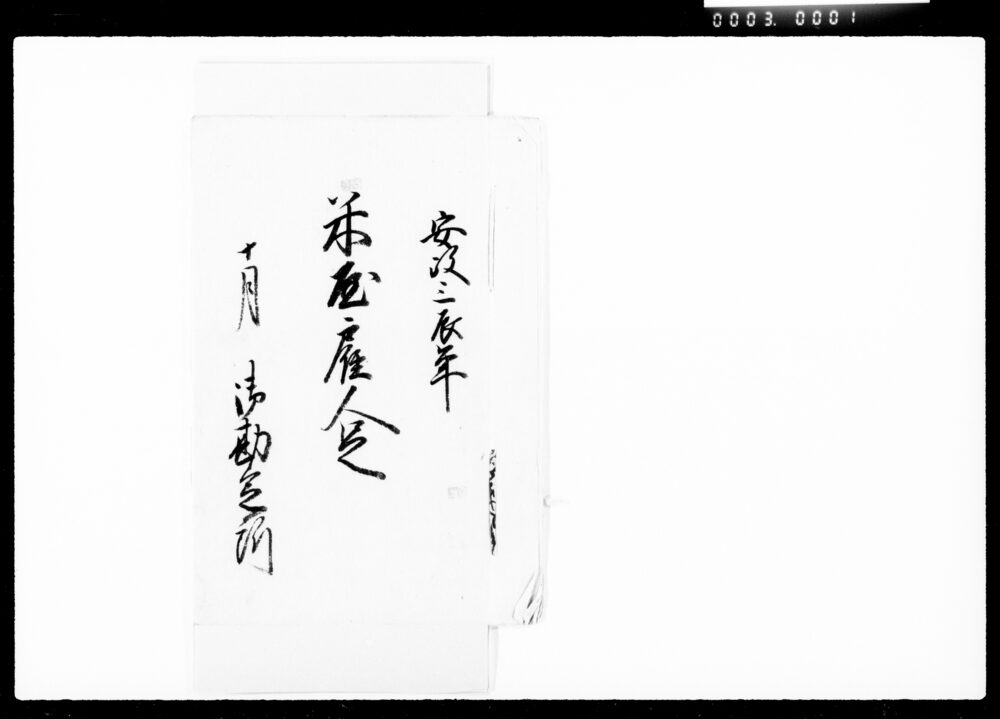 0003. 0001
安政三辰年
米屋雇人足
十月 御勘定所